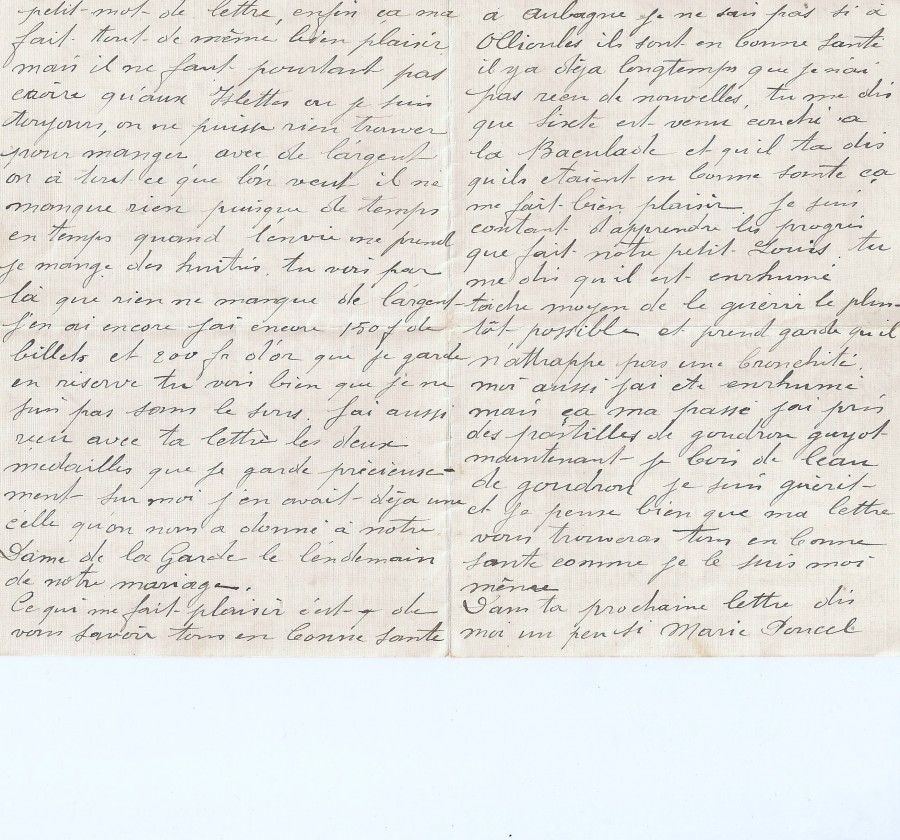 petit mot de lettre, enfin ça ma
fait tout de même bien plaisir
mais il ne faut pourtant pas
croire qu'aux Islettes ou je suis
toujours, on ne puisse rien trouver
pour manger avec de l'argent
on à tout ce que l'on veut il ne
manque rien puisque de temps
en temps quand l'envie me prend
je mange des huitres. tu vois par
là que rien ne manque de l'argent
j'en ai encore j'ai encore 150 f de
billets et 200 fr d'or que je garde
en réserve tu vois bien que je ne
suis pas sans le sous. j'ai aussi
reçu avec ta lettre les deux
médailles que je garde précieuse-
ment sur moi j'en avait déja une
celle qu'on nous a donné à notre
Dame de la Garde le lendemain
de notre mariage.
Ce qui me fait plaisir c'est de
vous savoir tous en bonne santé
à Aubagne je ne sais pas si à
Ollioules ils sont en bonne santé
il y a déja longtemps que je n'ai
pas reçu de nouvelles, tu me dis
que Sixte est venu couché a
la Baculade et qu'il ta dis
qu'ils etaient en bonne santé ça
me fait bien plaisir je suis
contant d'apprendre les progrès
que fait notre petit Louis. tu
me dis qu'il est enrhumé
tache moyen de le guerir le plu-
tôt possible et prend garde qu'il
n'attrappe pas une bronchite
moi aussi j'ai été enrhumé
mais ça ma passé j'ai pris
des pastilles de goudron guyot
maintenant je bois de l'eau
de goudron je suis guèrit
et je pense bien que ma lettre
vous trouveras tous en bonne
santé comme je le suis moi
même
Dans ta prochaine lettre dis
moi un peu si Marie Doucel